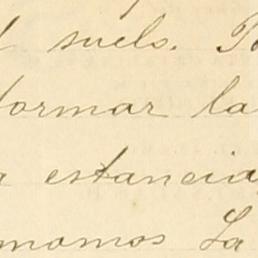 l suelo.
formar la
a estancia,
nomos La